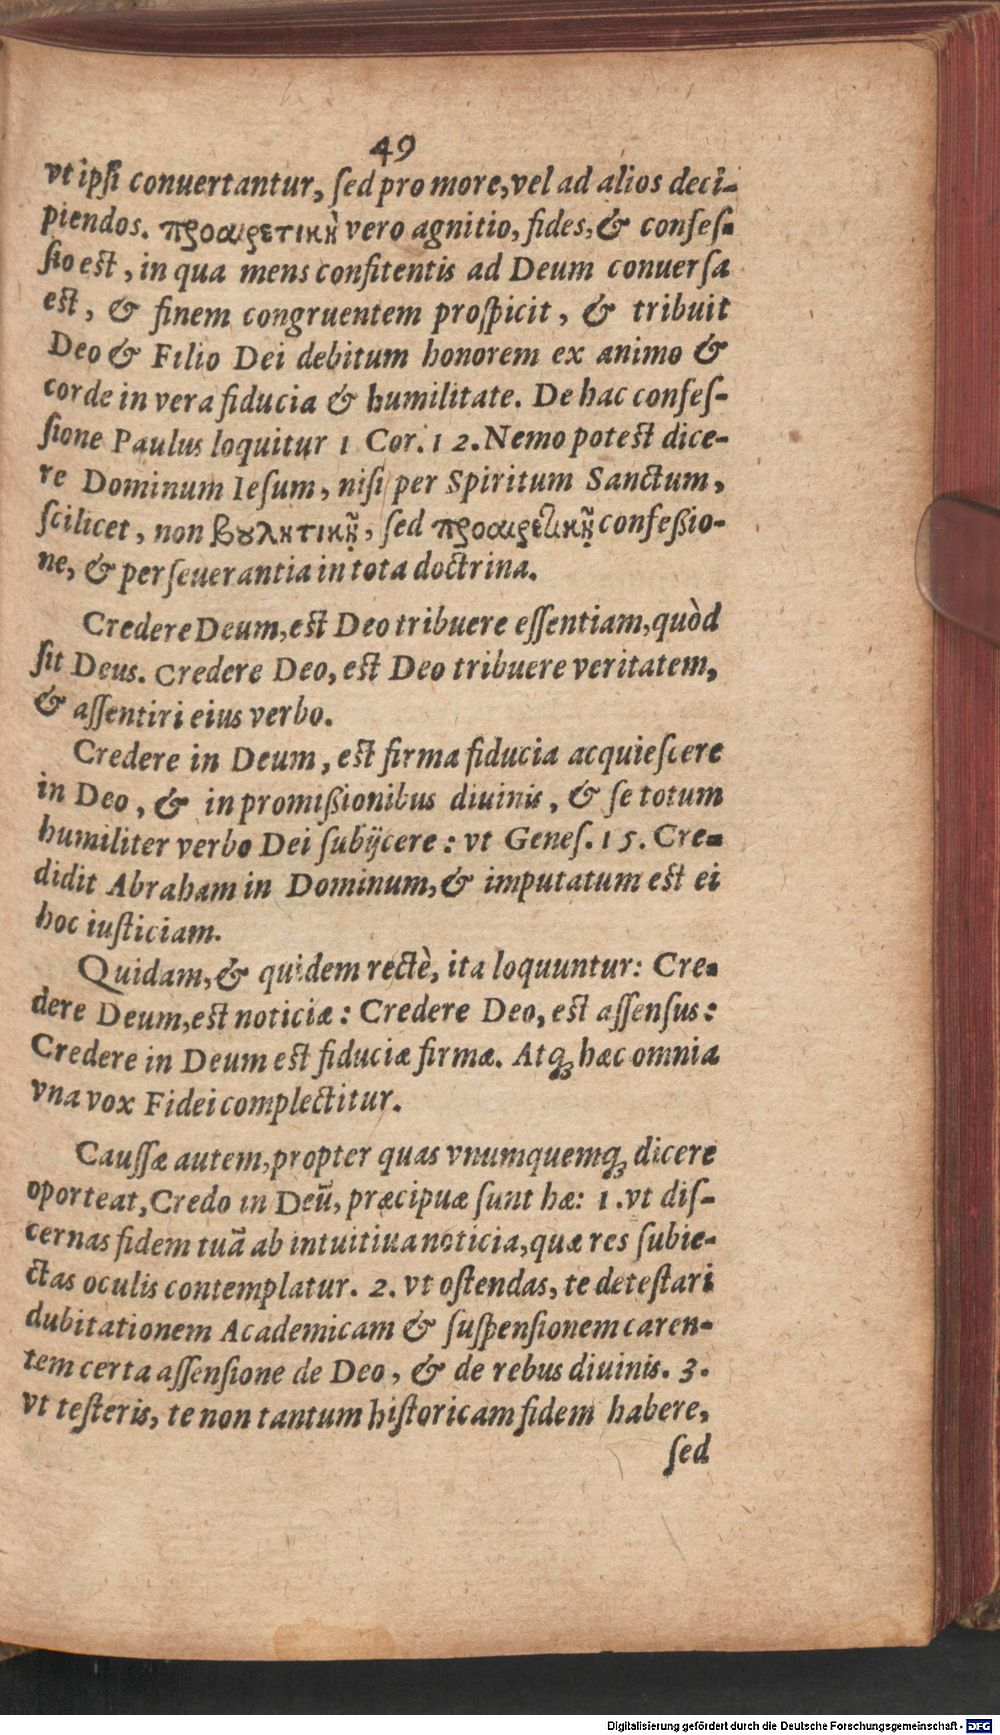 49
vt ipſi conuertantur, ſed pro more, vel ad alios deci-
piendos. προαιρετικὴ vero agnitio, fides, & confeſ-
ſio est, in qua mens confitentis ad Deum conuerſa
est, & finem congruentem proſpicit, & tribuit
Deo & Filio Dei debitum honorem ex animo &
corde in vera fiducia & humilitate. De hac confeſ-
ſione Paulus loquitur 1 Cor. 12. Nemo potest dice-
re Dominum Ieſum, niſi per Spiritum Sanctum,
ſcilicet, non βουλητικῇ, ſed προαιρετικῇ confeßio-
ne, & perſeuerantia in tota doctrina.
Credere Deum, est Deo tribuere eſſentiam, quòd
ſit Deus. Credere Deo, est Deo tribuere veritatem,
& aſſentiri eius verbo.
Credere in Deum, est firma fiducia acquieſcere
in Deo, & in promißionibus diuinis, & ſe totum
humiliter verbo Dei ſubijcere: vt Geneſ. 15. Cre-
didit Abraham in Dominum, & imputatum est ei
hoc iuſticiam.
Quidam, & quidem rectè, ita loquuntur: Cre-
dere Deum, est noticiæ: Credere Deo, est aſſenſus:
Credere in Deum est fiduciæ firmæ. Atq́; hæc omnia
vna vox Fidei complectitur.
Cauſſæ autem, propter quas vnumquemq́; dicere
oporteat, Credo in Deū, præcipuæ ſunt hæ: 1. vt diſ-
cernas fidem tuā ab intuitiua noticia, quæ res ſubie-
ctas oculis contemplatur. 2. vt oſtendas, te deteſtari
dubitationem Academicam & ſuſpenſionem caren-
tem certa aſſenſione de Deo, & de rebus diuinis. 3.
vt teſteris, te non tantum hiſtoricam fidem habere,
ſed
Digitalisierung gefördert durch die Deutsche Forschungsgemeinschaft - DFG